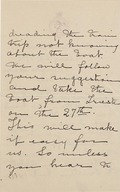 dreading the train
trip not knowing
about the boat
We will follow
your suggestion
and take the
boat from
on the 27th.
This will make
it easy for
us. So unless
you hear to